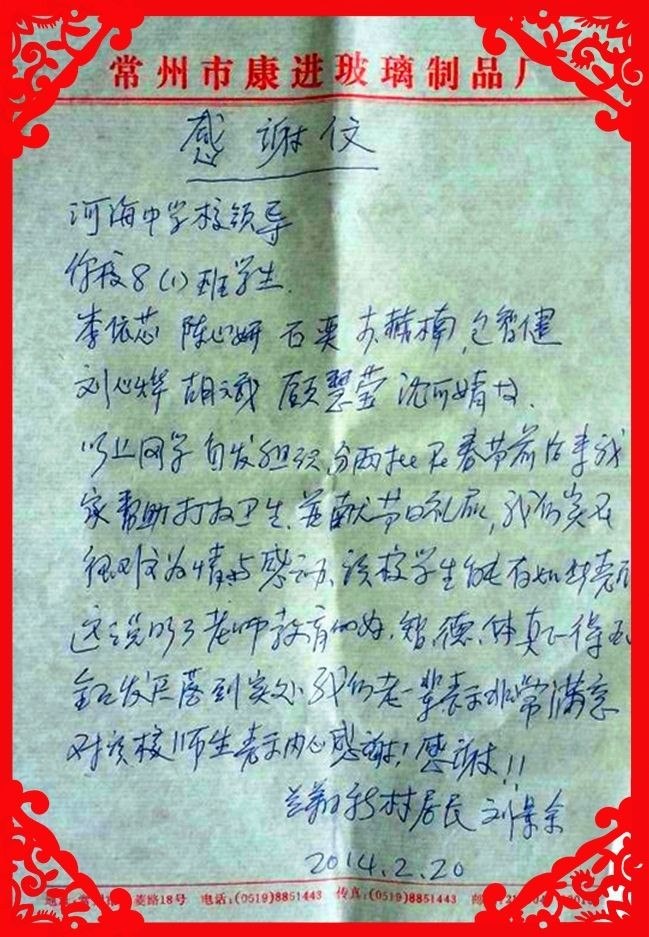 常州市康进玻璃制品厂
感谢信
河海中学校领导
你校8(1)班学生.
李依芯 陈心妍 石奕 赫楠,包智健
刘心烨 胡 顾慧莹 沈可婧
以上同学自发组织,分两批在春节前后来我
家帮助打扫卫生,并献节日礼品,我们实在
很对 为情与感动,该校学生能有如此表
这说明了老师教育的好,智、德、体真正得
全面发展落到实处我们老一辈表示非常满意
对该校师生表示内心感谢!感谢!!
兰翔新村居民 刘景余
2014.2.20
菱路18号 电话:(0519)8851443 传真:(0519)8851443